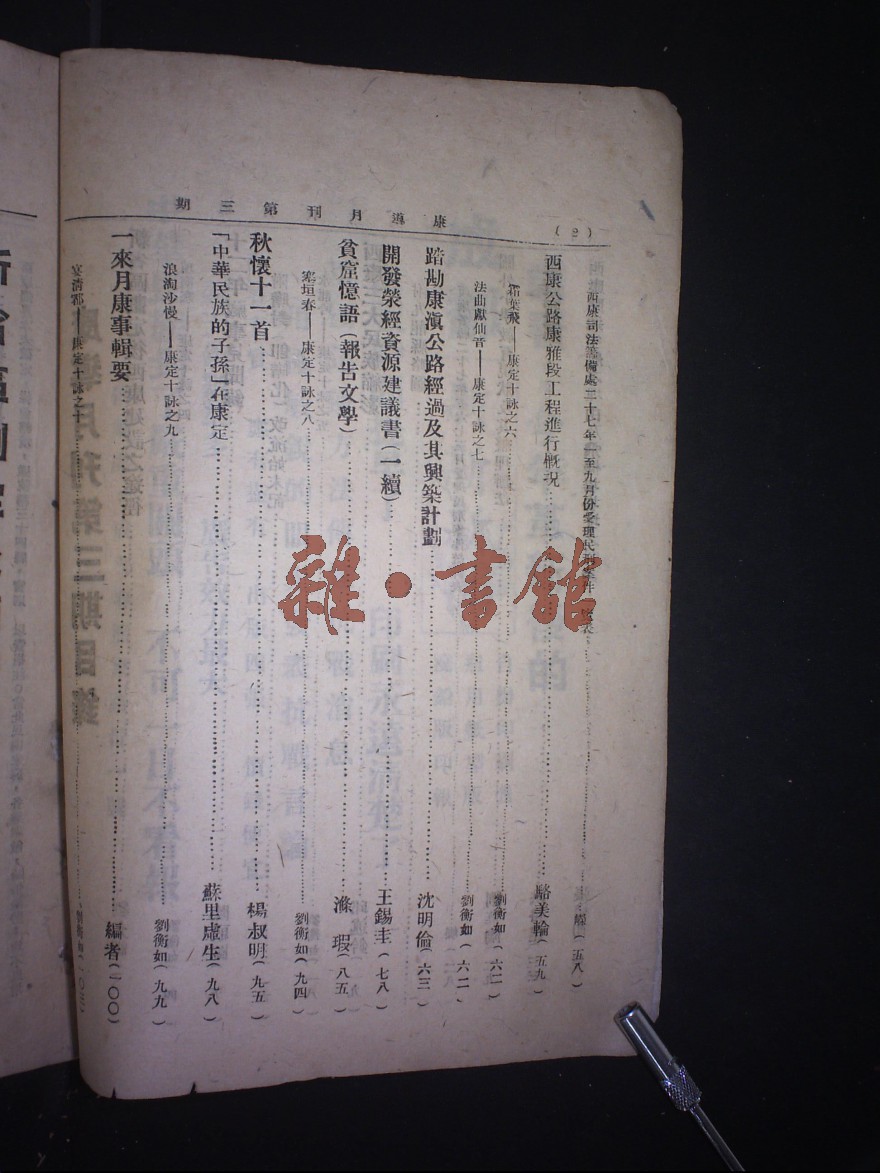 康導月刊第三期
(2)
西康司法籌備處二十七年一至九月份受理民刑案件一覽表 (五八)
西康公路康雅段工程進行概况 駱美輪(五九)
霜葉飛——康定十詠之六 劉衡如(六二)
法曲獻仙音——康定十詠之七 劉衡如(六二)
踏勘康滇公路經過及其興築計劃 沈明倫(六三)
開發滎經資源建議書(一續) 王錫圭(七八)
貧窟憶語(報告文學) 滌瑕(八五)
塞垣春——康定十詠之八 劉衡如(九四)
秋懷十一首 楊叔明(九五)
「中華民族的子孫」在康定 蘇里虛生(九八)
浪淘沙慢——康定十詠之九 劉衡如(九九)
一來月康事輯要 編者(一〇〇)
宴清都——康定十詠之十 劉衡如
雜·書館